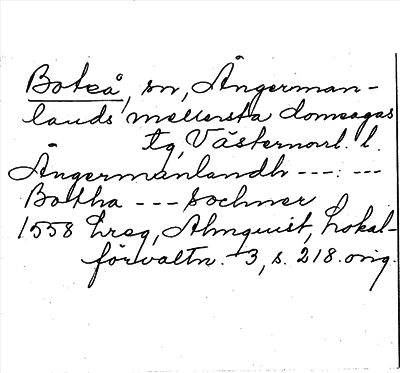 Boteå, sn, Ångerman-
lands mellersta domsagas
tg, Västernorrl. l.
Ångermanlandh ---:---
Botha --- sochner
1558 hreg, Almquist, Lokal-
förvaltn. 3, s. 218. orig.